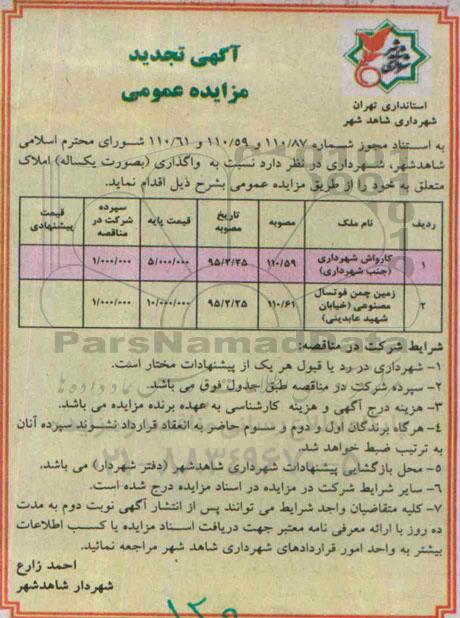 آگهی تجدید
مزایده عمومی
استانداری تهران
شهرداری شاهد شهر
به استناد مجوز شماره ۱۱۰/۸۷ و ۱۱۰/۵۹ و ۱۱۰/۶۱ شورای محترم اسلامی
شاهدشهر، شهرداری در نظر دارد نسبت به واگذاری (بصورت یکساله) املاک
متعلق به خود را از طریق مزایده عمومی بشرح ذیل اقدام نماید.
ردیف نام ملک مصوبه تاریخ مصوبه قیمت پایه سپرده شرکت در مناقصه قیمت پیشنهادی
۱ کارواش شهرداری (جنب شهرداری) ۱۱۰/۵۹ ۹۵/۲/۲۵ ۵/۰۰۰/۰۰۰ ۱/۰۰۰/۰۰۰
۲ زمین چمن فوتسال مصنوعی (خیابان شهید عابدینی) ۱۱۰/۶۱ ۹۵/۲/۲۵ ۱۰/۰۰۰/۰۰۰ ۱/۰۰۰/۰۰۰
شرایط شرکت در مناقصه:
۱- شهرداری در رد یا قبول هر یک از پیشنهادات مختار است.
۲- سپرده شرکت در مناقصه طبق جدول فوق می باشد.
۳- هزینه درج آگهی و هزینه کارشناسی به عهده برنده مزایده می باشد.
۴- هرگاه برندگان اول و دوم و سوم حاضر به انعقاد قرارداد نشوند سپرده آنان
به ترتیب ضبط خواهد شد.
۵- محل بازگشایی پیشنهادات شهرداری شاهدشهر (دفتر شهردار) می باشد.
۶- سایر شرایط شرکت در مزایده در اسناد مزایده درج شده است.
۷- کلیه متقاضیان واجد شرایط می توانند پس از انتشار آگهی نوبت دوم به مدت
ده روز با ارائه معرفی نامه معتبر جهت دریافت اسناد مزایده یا کسب اطلاعات
بیشتر به واحد امور قراردادهای شهرداری شاهد شهر مراجعه نمائید.
احمد زارع
شهردار شاهدشهر
ParsNamadData